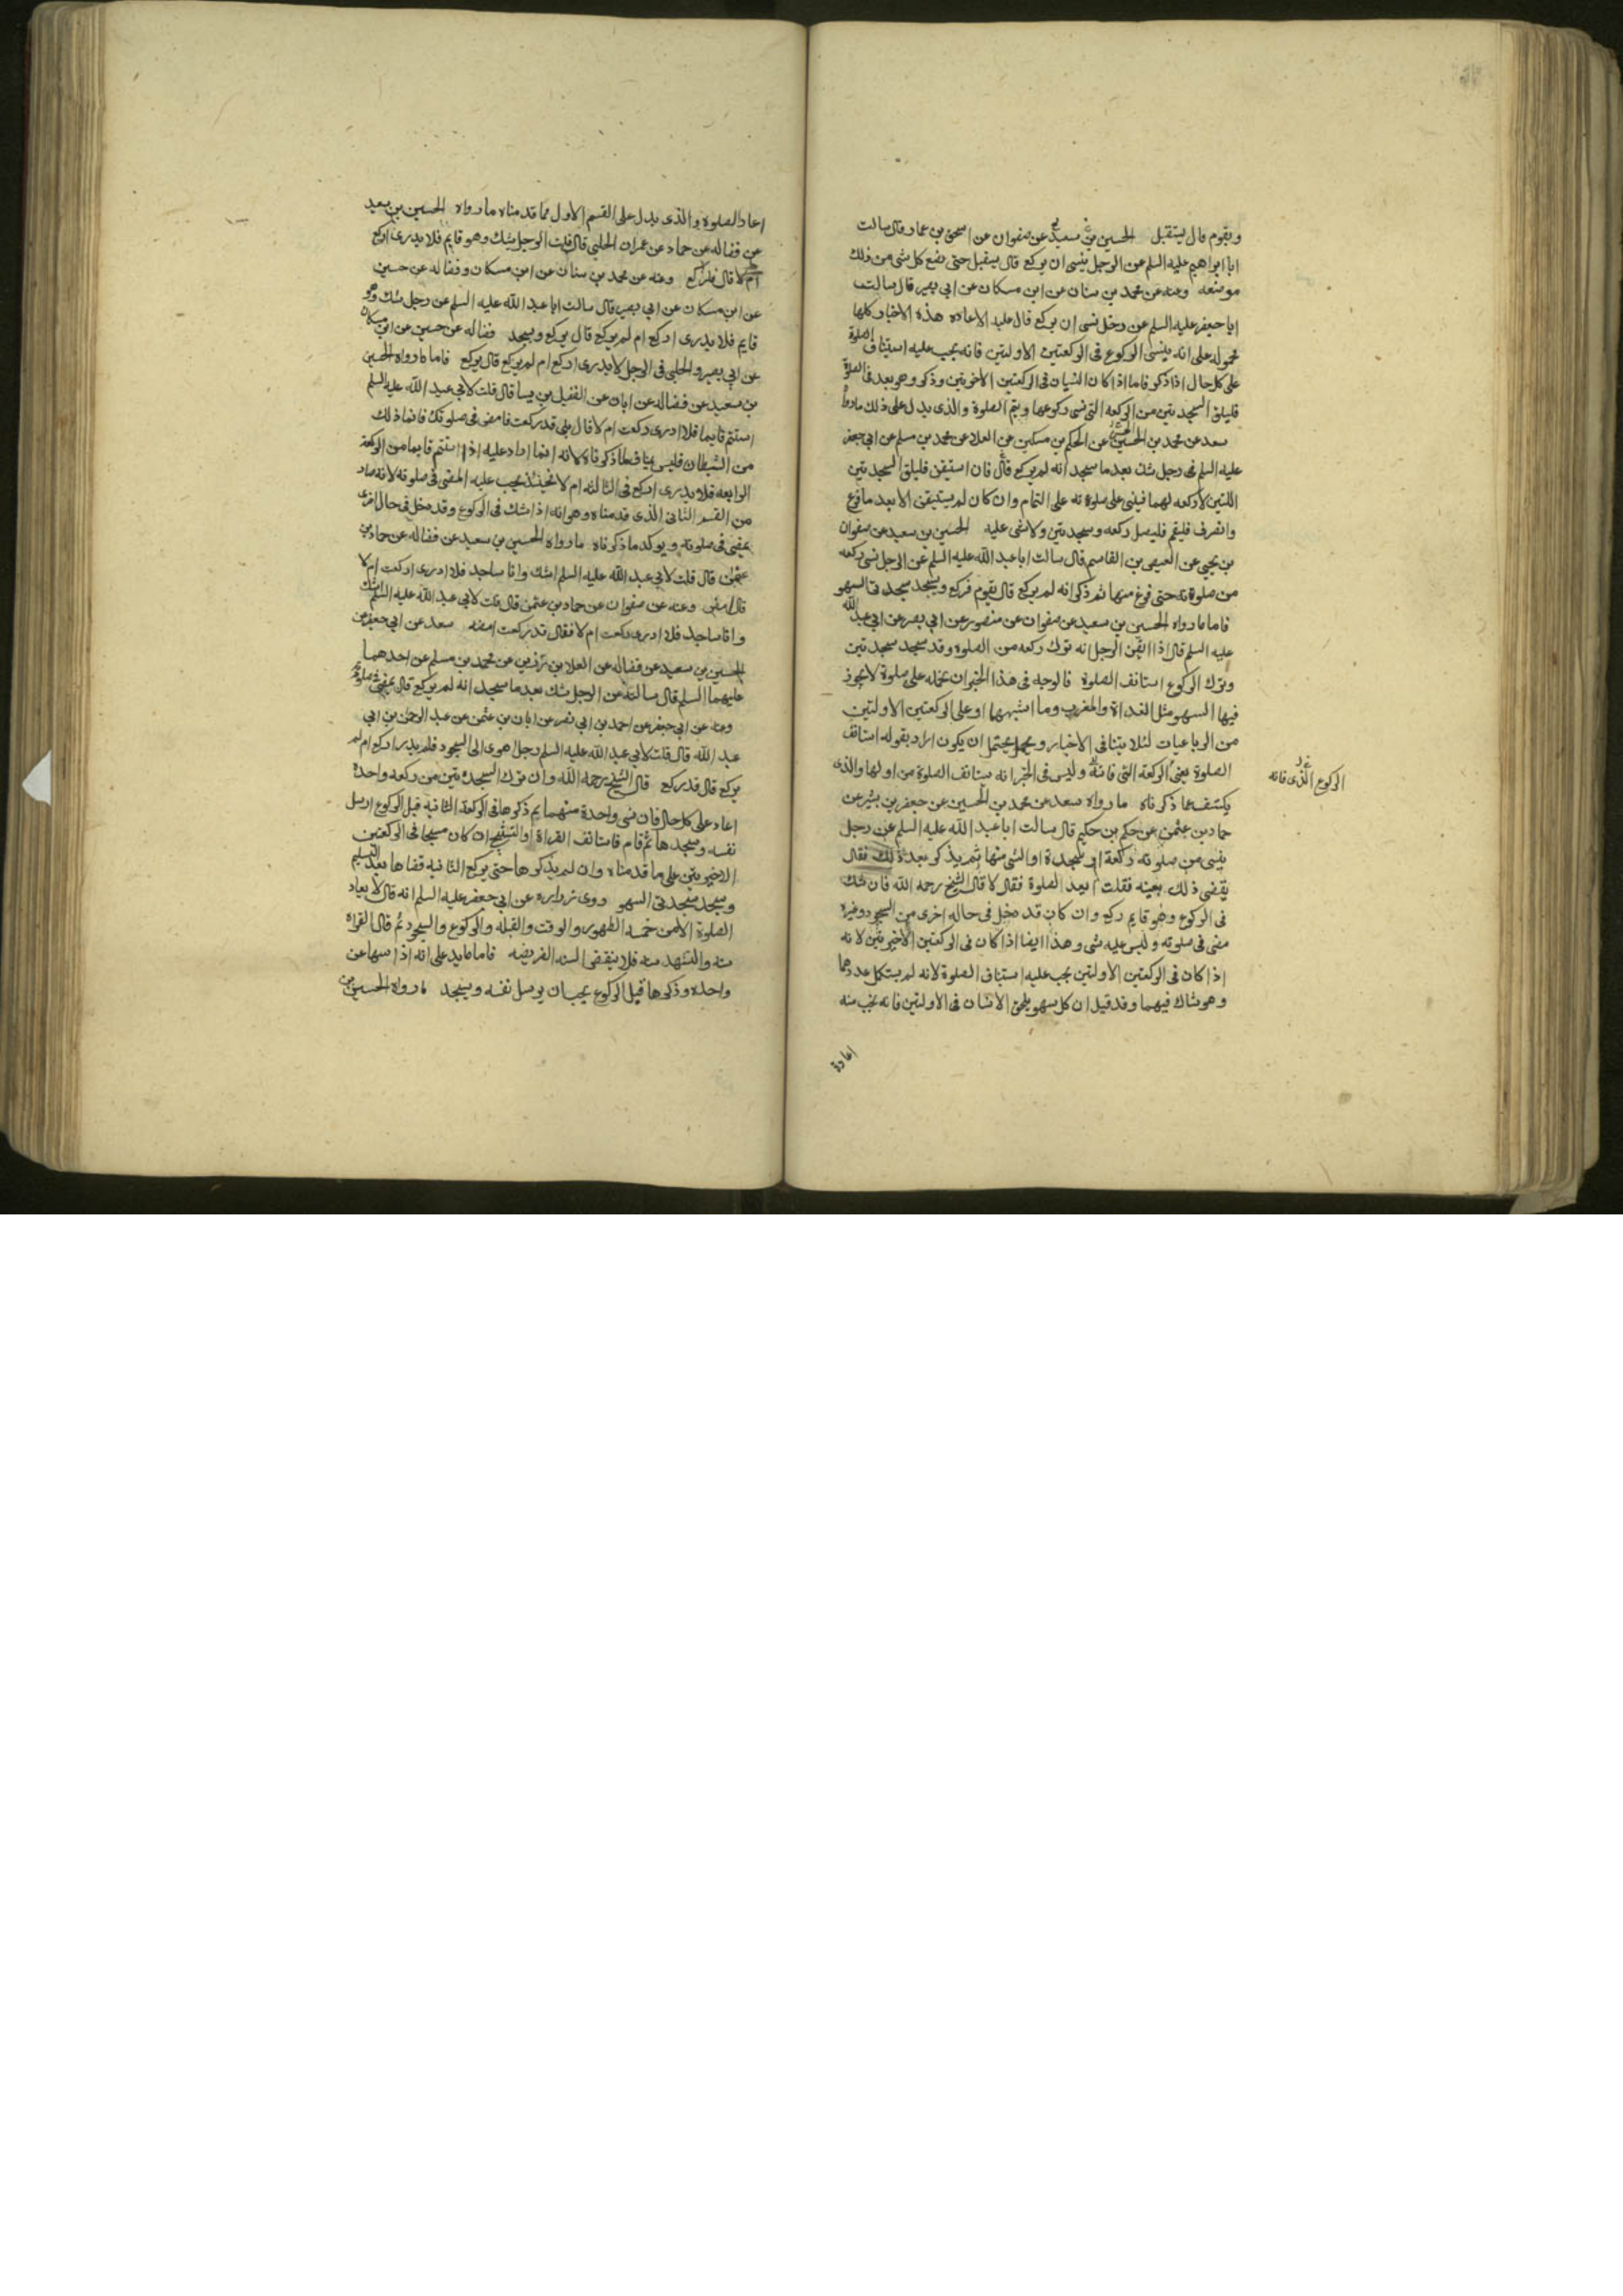 ويقوم قال يستقبل الحسين بن سعيد عن صفوان عن اسحق بن عمار قال سالت
ابا ابراهيم عليه السلم عن الرجل ينسى ان يركع قال يستقبل حتى يضع كل شى من ذلك
موضعه وعنه عن محمد بن سنان عن ابن مسكان عن ابى بصير قال سالت
ابا جعفر عليه السلم عن رجل نسى ان يركع قال عليه الاعاده هذه الاخبار كلها
محمولة على انه ينسى الركوع فى الركعتين الاولتين فانه يجب عليه استيناف الصلوة
على كل حال اذا ذكر فاما اذا كان النسيان فى الركعتين الاخريتين وذكر وهو بعد فى الصلوة
فليلق السجدتين من الركعه التى نسى ركوعها ويتم الصلوة والذى يدل على ذلك ما رواه
سعد عن محمد بن الحسين عن الحكم بن مسكين عن العلا عن محمد بن مسلم عن ابى جعفر
عليه السلم فى رجل شك بعد ما سجد انه لم يركع قال فان استيقن فليلق السجدتين
اللتين لا ركعه لهما فيبنى على صلوته على التمام وان كان لم يستيقن الا بعد ما فرغ
وانصرف فليقم فليصل ركعه وسجدتين ولا شى عليه الحسين بن سعيد عن صفوان
بن يحيى عن العيص بن القاسم قال سالت ابا عبد الله عليه السلم عن الرجل نسى ركعه
من صلوته حتى فرغ منها ثم ذكر انه لم يركع قال يقوم فيركع ويسجد سجدتى السهو
فاما ما رواه الحسين بن سعيد عن صفوان عن منصور عن ابى بصير عن ابى عبد الله
عليه السلم قال اذا ايقن الرجل انه ترك ركعه من الصلوه وقد سجد سجدتين
وترك الركوع استانف الصلوة فالوجه فى هذا الخبر ان نحمله على صلوة لا يجوز
فيها السهو مثل الغداة والمغرب وما اشبهها او على الركعتين الاولتين
من الرباعيات لئلا يتنافى الاخبار ويحتمل ان يكون اراد بقوله استانف
الصلوة يعنى الركعة التى فاتته وليس فى الخبر انه يستانف الصلوة من اولها والذى
الركوع الذى فاته
يكشف عما ذكرناه ما رواه سعد عن محمد بن الحسين عن جعفر بن بشير عن
حماد بن عثمن عن حكم بن حكيم قال سالت ابا عبد الله عليه السلم عن رجل
ينسى من صلوته ركعة او سجدة او الشى منها ثم يذكر بعد ذلك فقال
يقضى ذلك بعينه فقلت ايعيد الصلوة فقال لا قال الشيخ رحمه الله فان شك
فى الركوع وهو قايم ركع وان كان قد دخل فى حاله اخرى من السجود وغيره
مضى فى صلوته وليس عليه شى وهذا ايضا اذا كان فى الركعتين الاخيرتين لانه
اذا كان فى الركعتين الاولتين يجب عليه استيناف الصلوة لانه لم يستكمل عددهما
وهو شاك فيهما وقد قيل ان كل سهو يلحق الانسان فى الاولتين فانه يجب منه
اعادة
اعاد الصلوة والذى يدل على القسم الاول مما قدمناه ما رواه الحسين بن سعيد
عن فضاله عن حماد عن عمران الحلبى قال قلت الرجل يشك وهو قايم فلا يدرى اركع
ام لا قال فليركع وعنه عن محمد بن سنان عن ابن مسكان وفضاله عن حسين
عن ابن مسكان عن ابى بصير قال سالت ابا عبد الله عليه السلم عن رجل شك وهو
قايم فلا يدرى اركع ام لم يركع قال يركع ويسجد فضاله عن حسين عن ابن مسكان
عن ابى بصير والحلبى فى الرجل لا يدرى اركع ام لم يركع قال يركع فاما ما رواه الحسين
بن سعيد عن فضاله عن ابان عن الفضيل بن يسار قال قلت لابى عبد الله عليه السلم
استتم قايما فلا ادرى ركعت ام لا قال بلى قد ركعت فامض فى صلوتك فانما ذلك
من الشيطان فليس ينافى ما ذكرناه لانه انما اراد عليه اذا استتم قايما من الركعة
الرابعه فلا يدرى اركع فى الثالثه ام لا فحينئذ يجب عليه المضى فى صلوته لانه صار
من القسم الثانى الذى قدمناه وهو انه اذا شك فى الركوع وقد دخل فى حال اخرى
يمضى فى صلوته ويوكد ما ذكرناه ما رواه الحسين بن سعيد عن فضاله عن حماد بن
عثمن قال قلت لابى عبد الله عليه السلم اشك وانا ساجد فلا ادرى ركعت ام لا
قال امض وعنه عن صفوان عن حماد بن عثمن قال قلت لابى عبد الله عليه السلم اشك
وانا ساجد فلا ادرى ركعت ام لا فقال قد ركعت امضه سعد عن ابى جعفر عن
الحسين بن سعيد عن فضاله عن العلا بن رزين عن محمد بن مسلم عن احدهما
عليهما السلم قال سالته عن الرجل شك بعد ما سجد انه لم يركع قال يمضى فى صلوته
وعنه عن ابى جعفر عن احمد بن ابى نصر عن ابان بن عثمن عن عبد الرحمن بن ابى
عبد الله قال قلت لابى عبد الله عليه السلم رجل اهوى الى السجود فلم يدر اركع ام لم
يركع قال قد ركع قال الشيخ رحمه الله وان ترك السجدتين من ركعه واحدة
اعاد على كل حال فان نسى واحدة منهما ثم ذكرها فى الركعة الثانية قبل الركوع ارسل
نفسه وسجدها ثم قام فاستانف القراة او التسبيح ان كان مسبحا فى الركعتين
الاخيرتين على ما قدمناه وان لم يذكرها حتى يركع الثانيه قضاها بعد التسليم
وسجد سجدتى السهو روى زراره عن ابى جعفر عليه السلم انه قال لا يعاد
الصلوة الا من خمسه الطهور والوقت والقبله والركوع والسجود ثم قال القراه
سنه والتشهد سنه فلا ينقض السنه الفريضه فاما ما يدل على انه اذا سها عن
واحده وذكرها قبل الركوع يجب ان يرسل نفسه ويسجد ما رواه الحسين بن